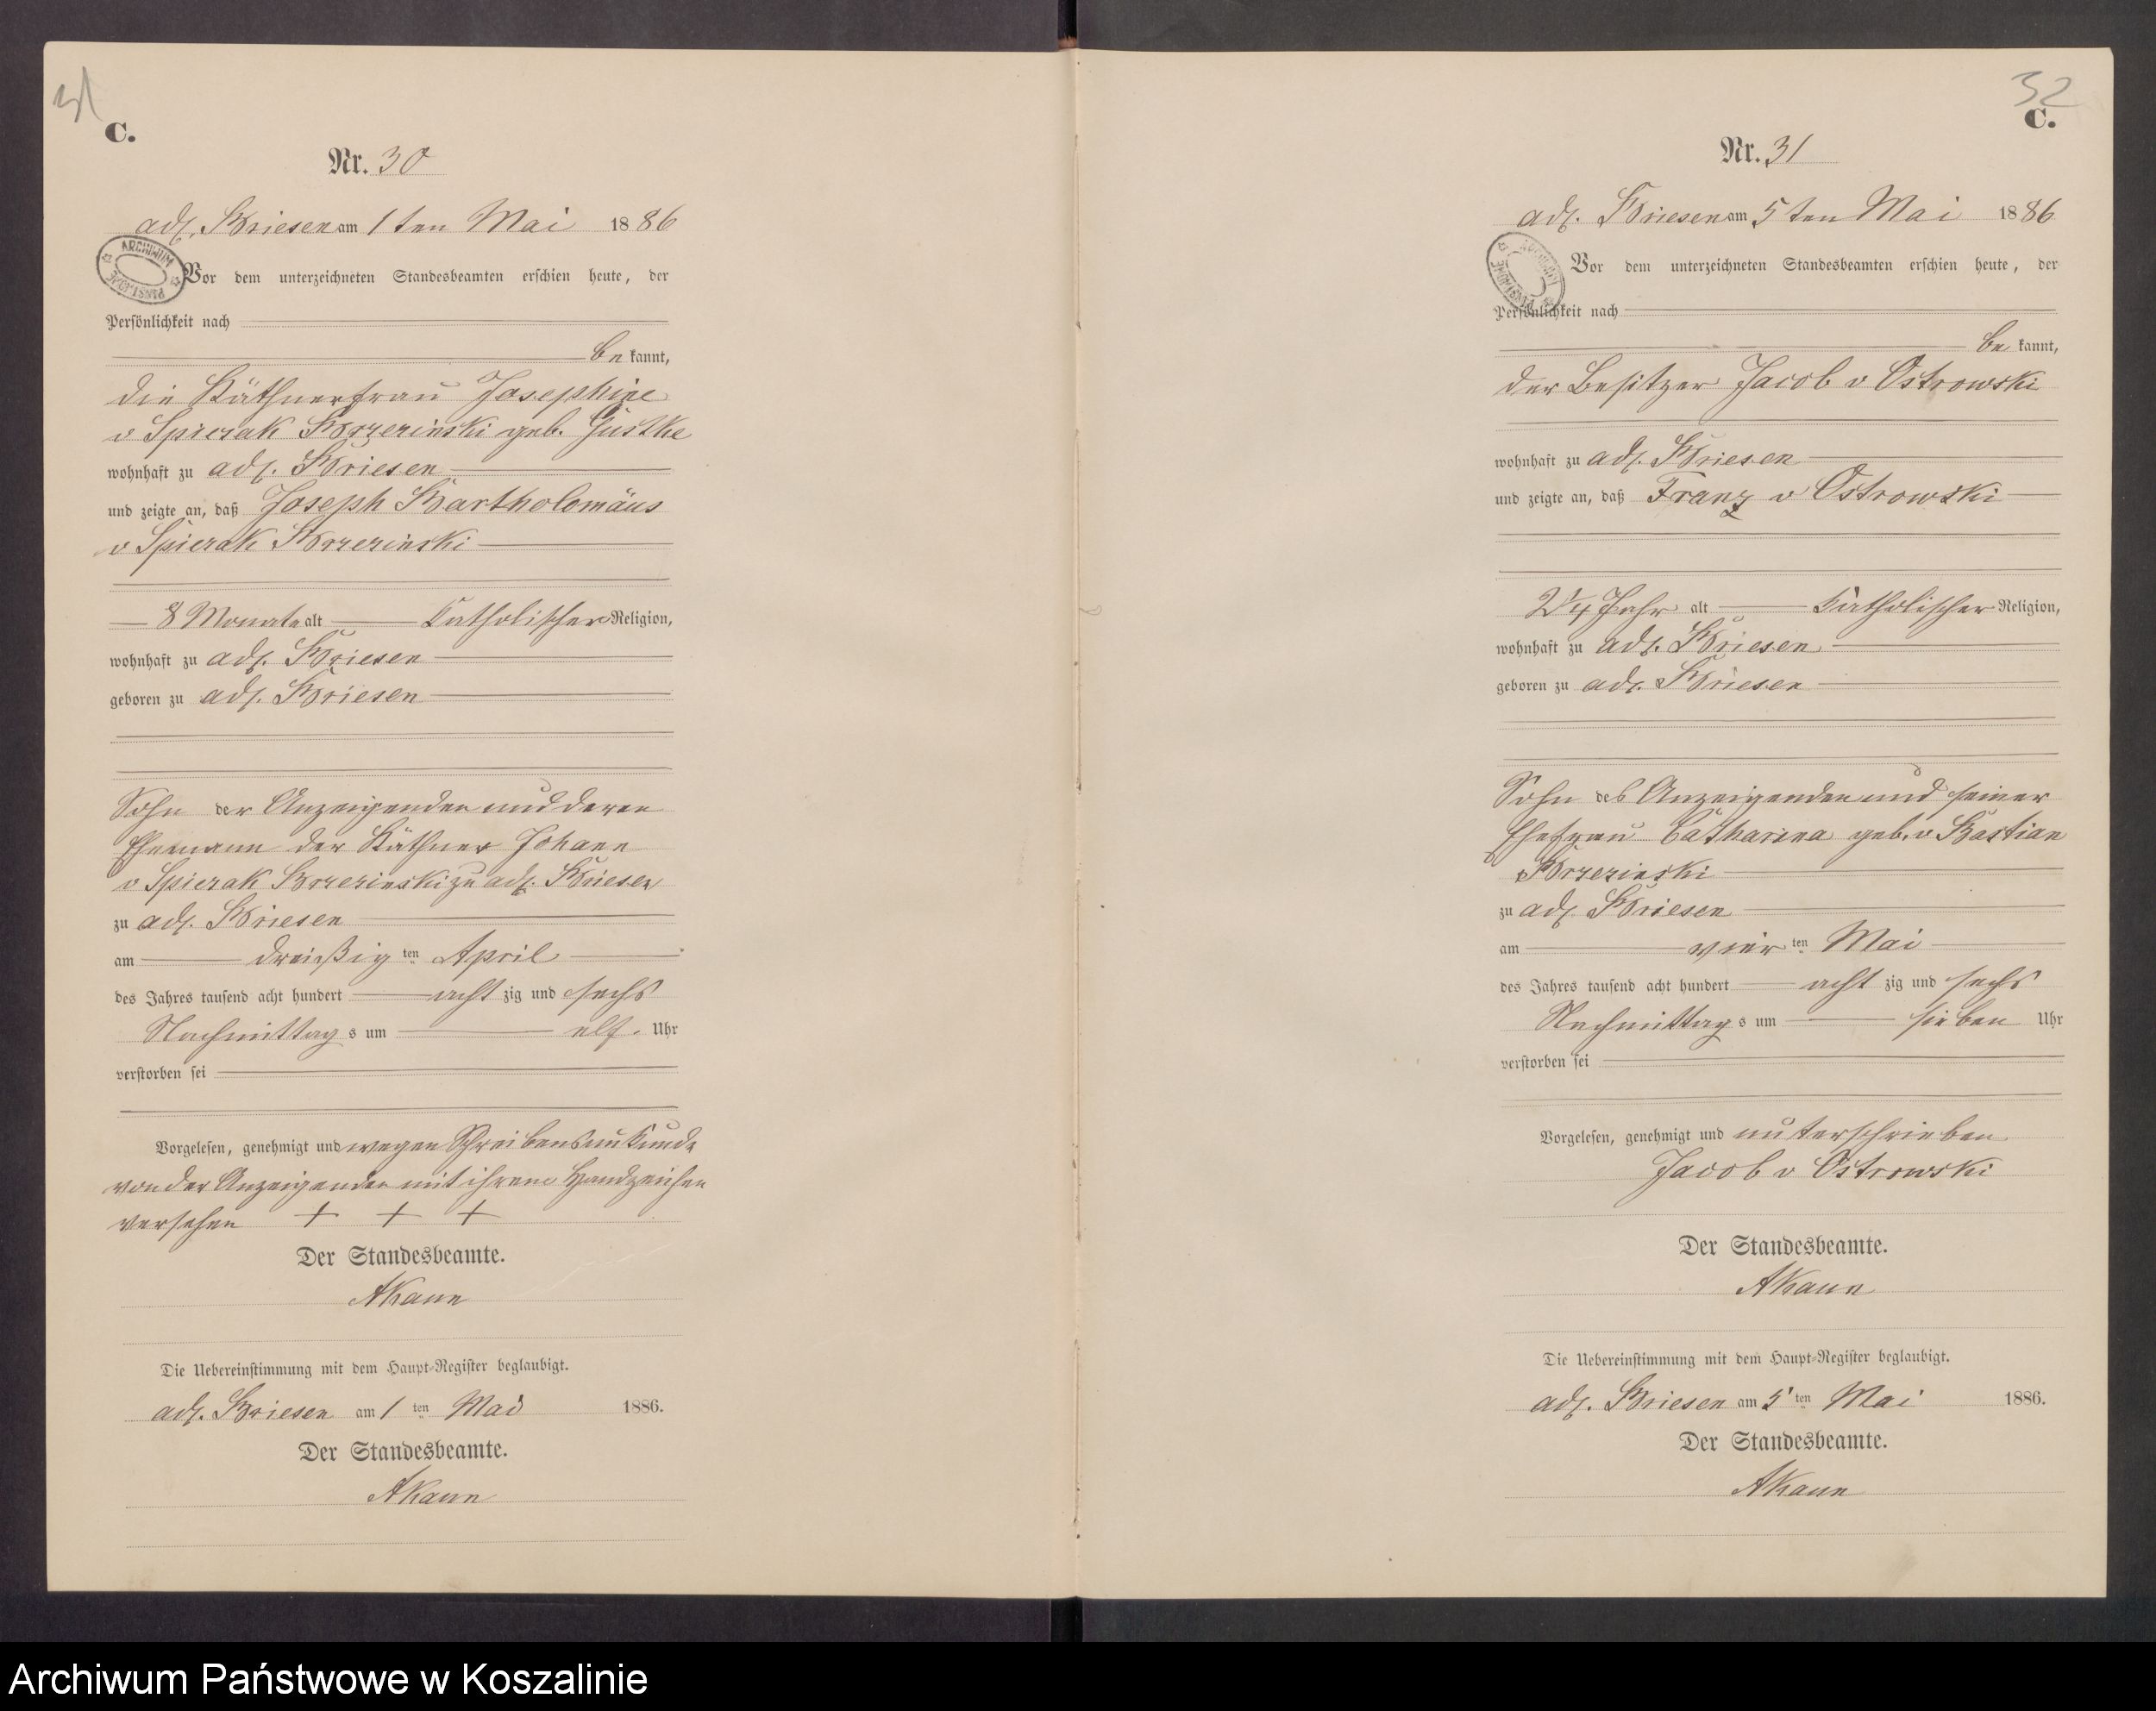 31
C.
Nr. 30
adl. Briesen am 1ten Mai 1886
ARCHIWUM PAŃSTWOWE
Vor dem unterzeichneten Standesbeamten erschien heute, der
Persönlichkeit nach
be kannt,
die Käthnerfrau Josephine
v Spiczak Brzezinski geb. Gustke
wohnhaft zu adl. Briesen
und zeigte an, daß Joseph Bartholomäus
v Spiczak Brzezinski
8 Monate alt Katholischer Religion,
wohnhaft zu adl. Briesen
geboren zu adl. Briesen
Sohn der Anzeigenden und deren
Ehemann der Käthner Johann
v Spiczak Brzezinski zu adl. Briesen
zu adl. Briesen
am dreißig ten April
des Jahres tausend acht hundert acht zig und sechs
Nachmittag s um elf Uhr
verstorben sei
Vorgelesen, genehmigt und wegen Schreibensunkunde
von der Anzeigenden mit ihrem Handzeichen
versehen + + +
Der Standesbeamte.
AKaun
Die Uebereinstimmung mit dem Haupt-Register beglaubigt.
adl. Briesen am 1 ten Mai 1886.
Der Standesbeamte.
AKaun
32
C.
Nr. 31
adl. Briesen am 5ten Mai 1886
ARCHIWUM PAŃSTWOWE
Vor dem unterzeichneten Standesbeamten erschien heute, der
Persönlichkeit nach
be kannt,
der Besitzer Jacob v Ostrowski
wohnhaft zu adl. Briesen
und zeigte an, daß Franz v Ostrowski
2 1/4 Jahr alt Katholischer Religion,
wohnhaft zu adl. Briesen
geboren zu adl. Briesen
Sohn des Anzeigenden und seiner
Ehefrau Catharina geb. v Bastian
Brzezinski
zu adl. Briesen
am vier ten Mai
des Jahres tausend acht hundert acht zig und sechs
Nachmittag s um sieben Uhr
verstorben sei
Vorgelesen, genehmigt und unterschrieben
Jacob v Ostrowski
Der Standesbeamte.
AKaun
Die Uebereinstimmung mit dem Haupt-Register beglaubigt.
adl. Briesen am 5 ten Mai 1886.
Der Standesbeamte.
AKaun
Archiwum Państwowe w Koszalinie